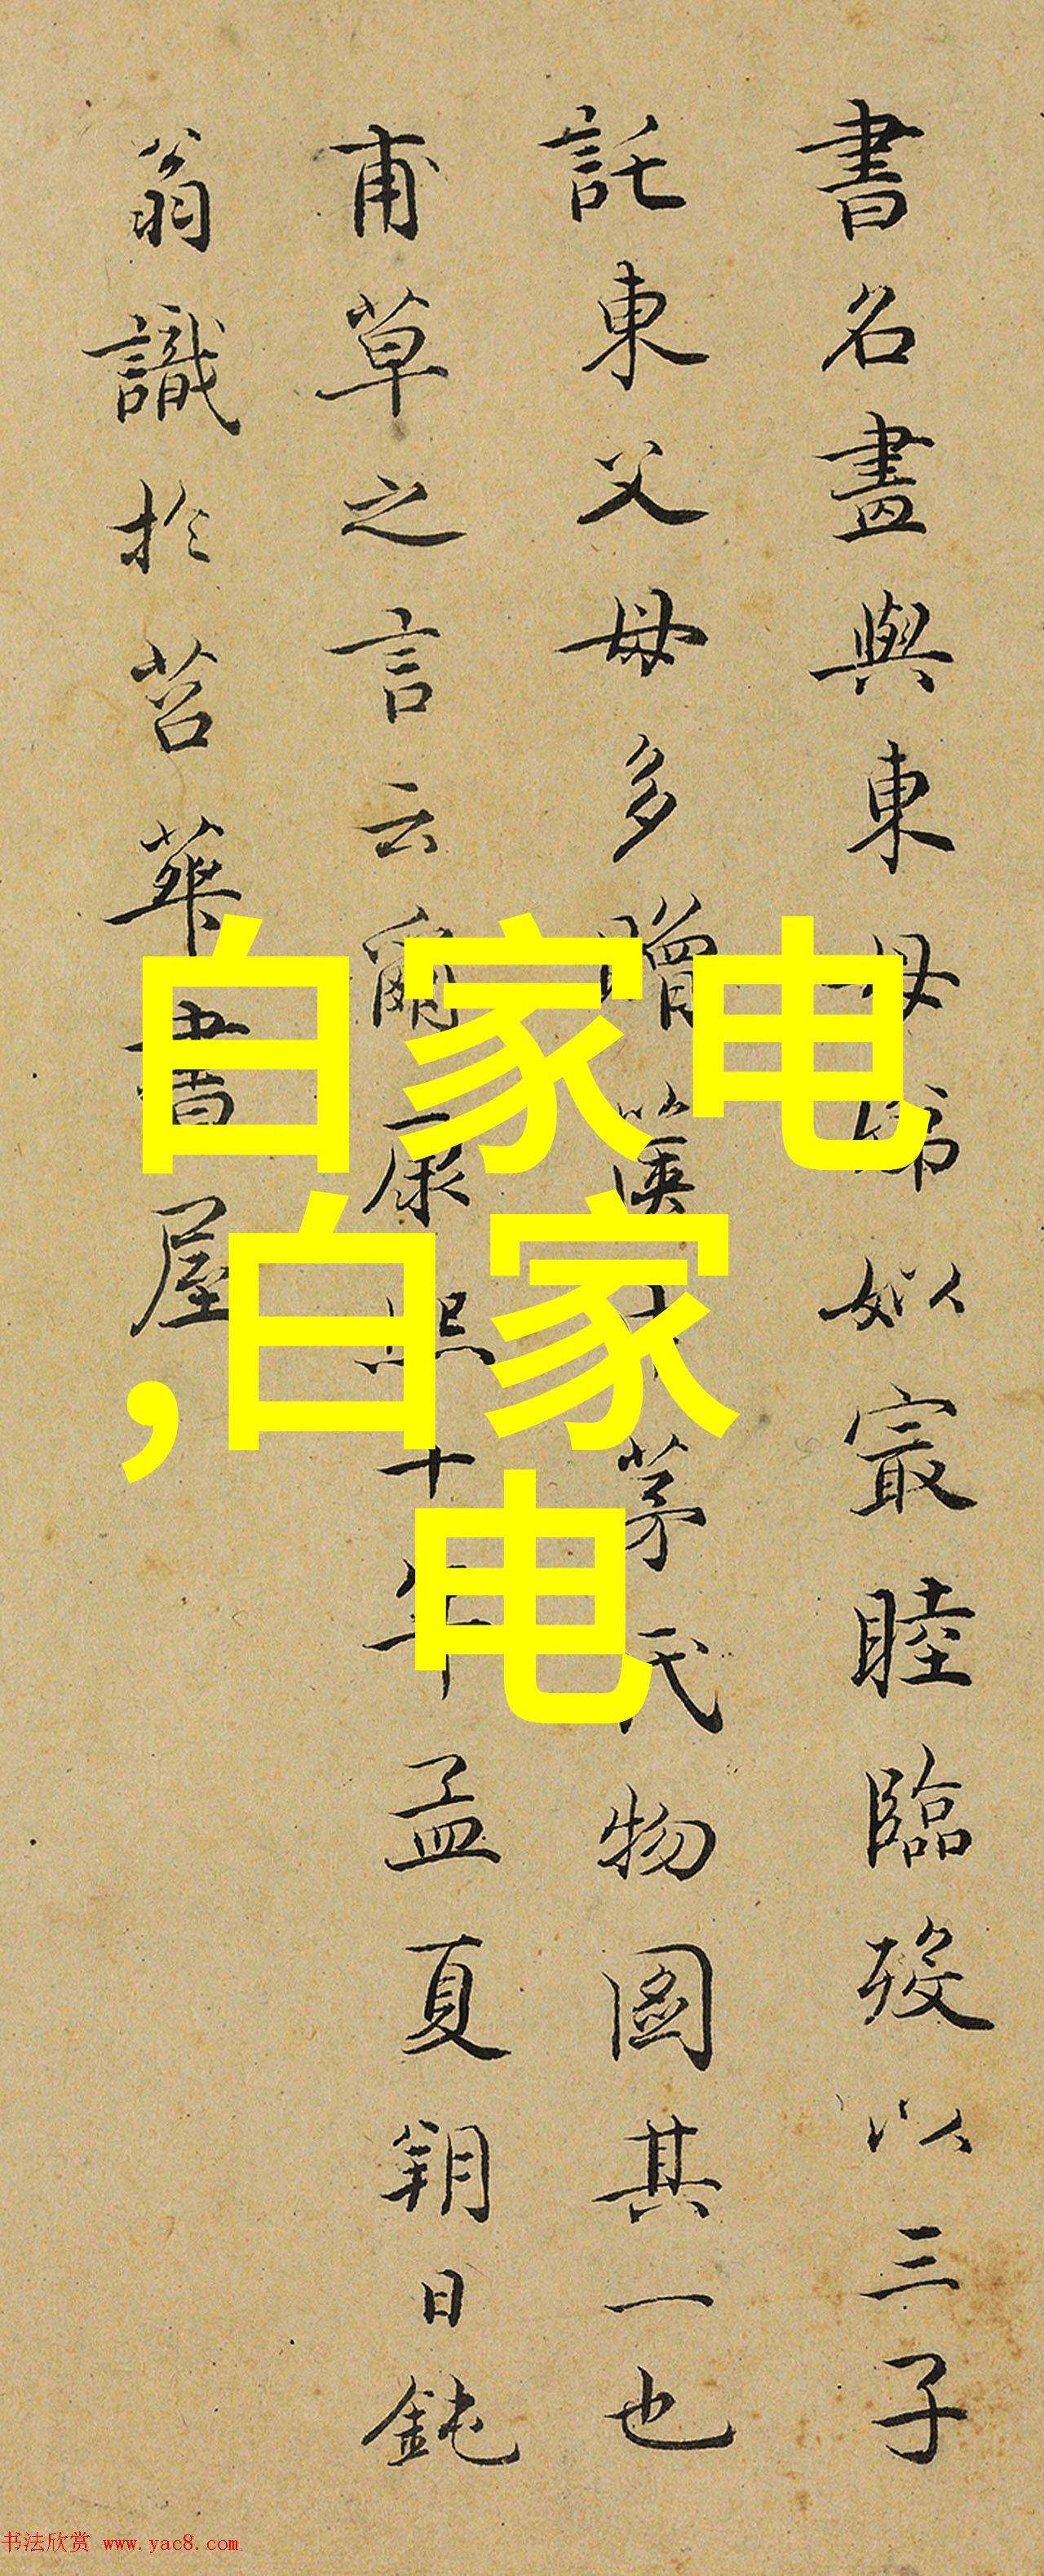 書名畫與東母娣姒寂睦臨歿以三子
託東父母多贈篋中茅氏物圖其一也
甫草之言云爾康熙十年孟夏朔日鈍
翁識於苕華書屋
白家电
,白家
电
书法欣赏 www.yac8.com